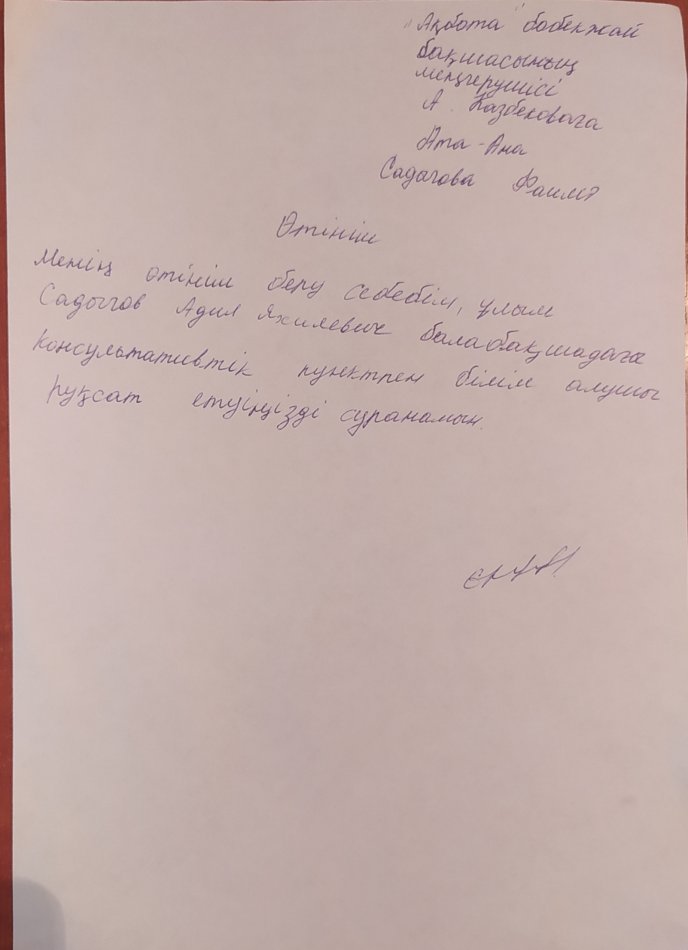 "Ақбота" бөбекжай
бақшасының
меңгерушісі
А. Казбековаға
Ата-Ана
Садыгова
Өтініш
Менің өтініш беру себебім, ұлым
Садыгов Адил балабақшадаға
консультативтік пунктпен білім алушы
рұқсат етуіңізді сұранамын.